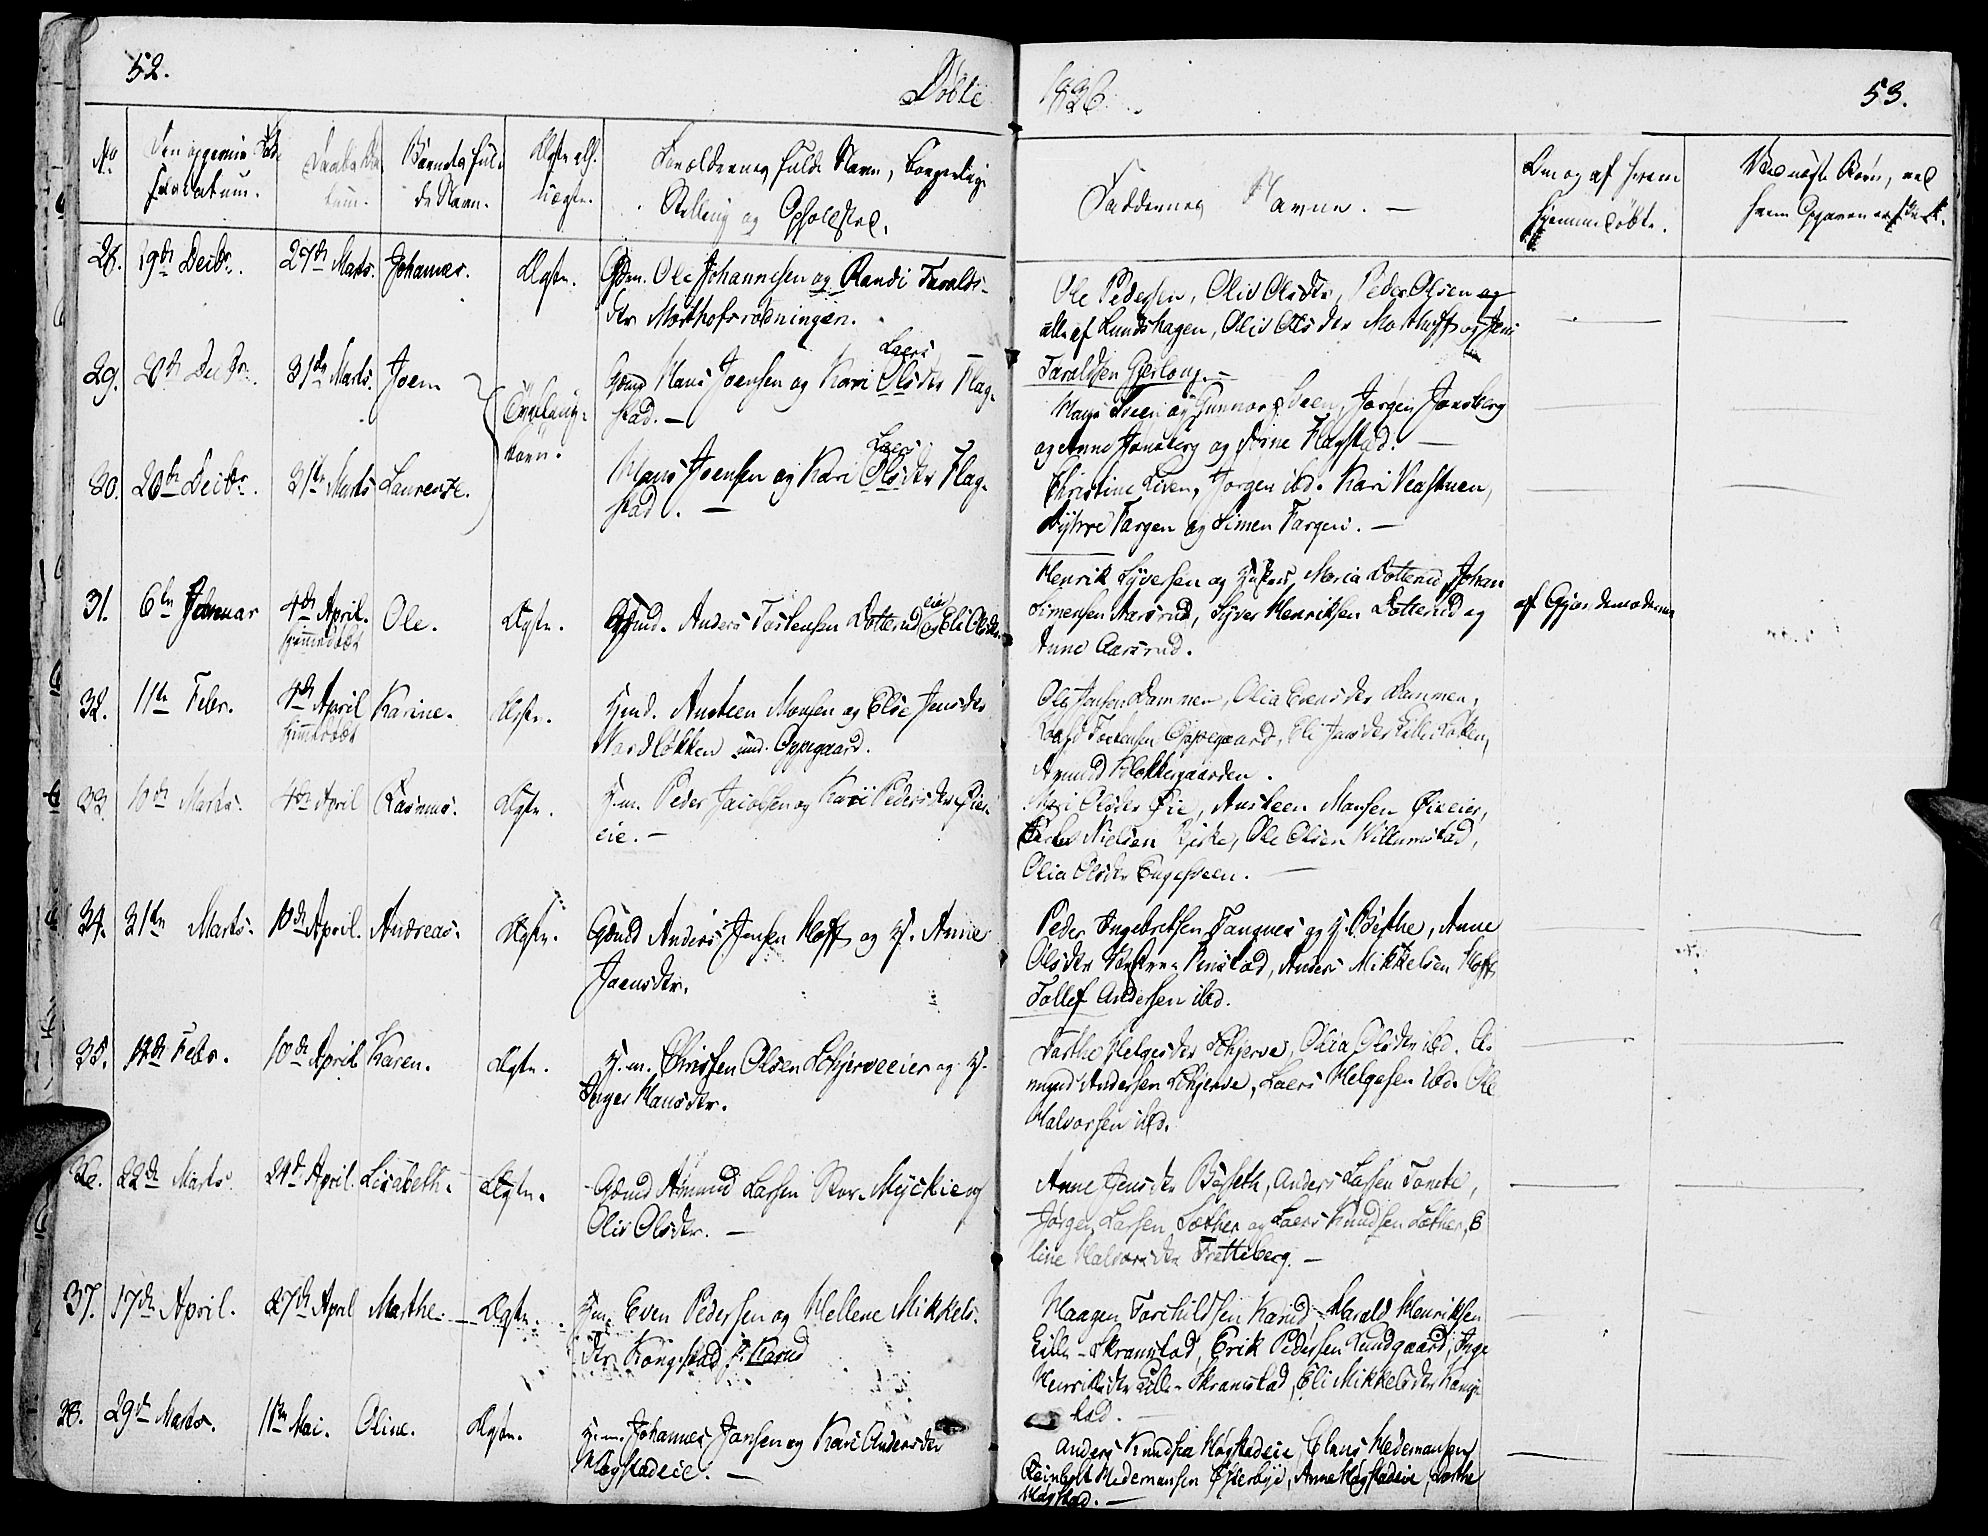 52.
Döbte
1826.
53.
No
Den opgivne Föd-
selsdatum.
Daabsda-
tum.
Barnets ful-
de Navn.
Ægte ell.
uægte.
Forældrenes fulde Navn, borgerlige
Stilling og Opholdsted.
Faddernes Navne. —
Om og af hvem
hjemmedöbte.
28. 19de Decbr. 27de Marts. Johannes. Ægte. Gdm. Ole Johannesen og Randi Taralds-
dtr Mosthofsrodningen.
Ole Pedersen, Oliv Olsdtr, Peder Olsen
alle af Lundshagen, Oliv Olsdtr Mosthoff og Jens
Taraldsen Gjerlaug. —
29. 20de Decbr. 31de Marts. Joen Tvillinge-
børn. Gdmd Hans Joensen og Kari Olsdtr Flag-
Laers
stad. —
Hans Sveen og Gunnor Sveen, Jørgen Jonsberg
og Anne Jonsberg og Arne Flagstad. —
30. 20de Decbr. 31te Marts Laurentze. Hans Joensen og Kari Olsdtr Flag-
Laers
stad. —
Christine Lien, Jørgen ibd. Kari Veastuen,
Dyhre Fargen og Simen Fargen. —
31. 6te Januar 4de April. Ole. Ægte. Gdmd. Anders Torstensen Dotterud eie og Eli Olsdtr.
hjemmedøbt
Henrik Syversen og Hustru Maria Dotterud, Johan
Simensen Aasrud, Syver Henriksen Dotterud og
Anne Aasrud.
af Gjordemoderen
32. 11te Febr. 4de April Karine. Ægte. Hmd. Austeen Monsen og Else Jensdtr
hjemmedøbt
Nordløkken und. Oppegaard.
Ole Jensen Dammen, Olia Evensdtr Dammen,
Torstensen Oppegaard, Eli Jensdtr Lille Løken,
Amund Klokkergaarden.
33. 10de Marts. 4de April Rasmus. Ægte. H.m. Peder Jacobsen og Kari Pedersdtr Øie-
eie. —
Mari Olsdtr Øie, Austeen Monsen Øieeier,
Peder Nielsen Kjerke, Ole Olsen Willumstad,
Olia Olsdtr Engesveen. —
34. 31te Marts. 10de April. Andreas. Ægte. Gdmd Anders Jensen Hoff og H. Anne
Joensdtr.
Peder Ingebretsen Tangnes og H. Berthe, Anne
Olsdtr Vestre-Kinstad, Anders Mikkelsen Hoff,
Tollef Andersen ibd.
35. 12de Febr. 10de April Karen. Ægte. H.m. Christen Olsen Schjerveeier og H.
Inger Hansdtr.
Marthe Helgesdtr Schjerve, Olia Olsdtr ibd. A-
mund Andersen Schjerve, Laers Helgesen ibd. Ole
Halvorsen ibd.
36. 22de Marts 24de April. Lisabeth. Ægte. Gdmd Amund Larsen Stor-Myckie og
Oliv Olsdtr. —
Anne Jensdtr Bjøseth, Anders Larsen Tomte,
Jørgen Larsen Sæther og Laers Knudsen Sæther, E-
line Halvorsdtr Fretteberg. —
37. 17de April. 27de April Marthe. Ægte. Hm. Even Pedersen og Hellene Mikkels-
dtr Kongstad pr. Karud
Haagen Torchildsen Karud, Harald Henriksen
Lille-Skramstad, Erik Pedersen Lundgaard, Inge
Henriksdtr Lille-Skramstad, Eli Mikkelsdtr Kong-
stad. —
38. 29de Marts. 11te Mai. Oline. Ægte. H.m. Johannes Jonsen og Kari Andersdtr
Hogstadeie. —
Anders Knudsen Høgstadeie, Claus Hedemansen,
Reinholt Hedemansen Østerbye, Anne Høgstadeie, Dorthe
Høgstad. —